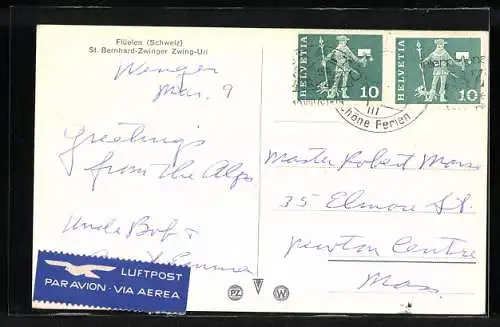 Flüelen (Schweiz)
St. Bernhard-Zwinger Zwing-Uri
Wengen
Mar. 9
Greetings
from the Alps
Uncle Bob &
LUFTPOST
PAR AVION · VIA AEREA
HELVETIA
10
HELVETIA
10
schöne Ferien
Master Robert
35 Elmore St.
Newton Centre
Mass.
PZ
W